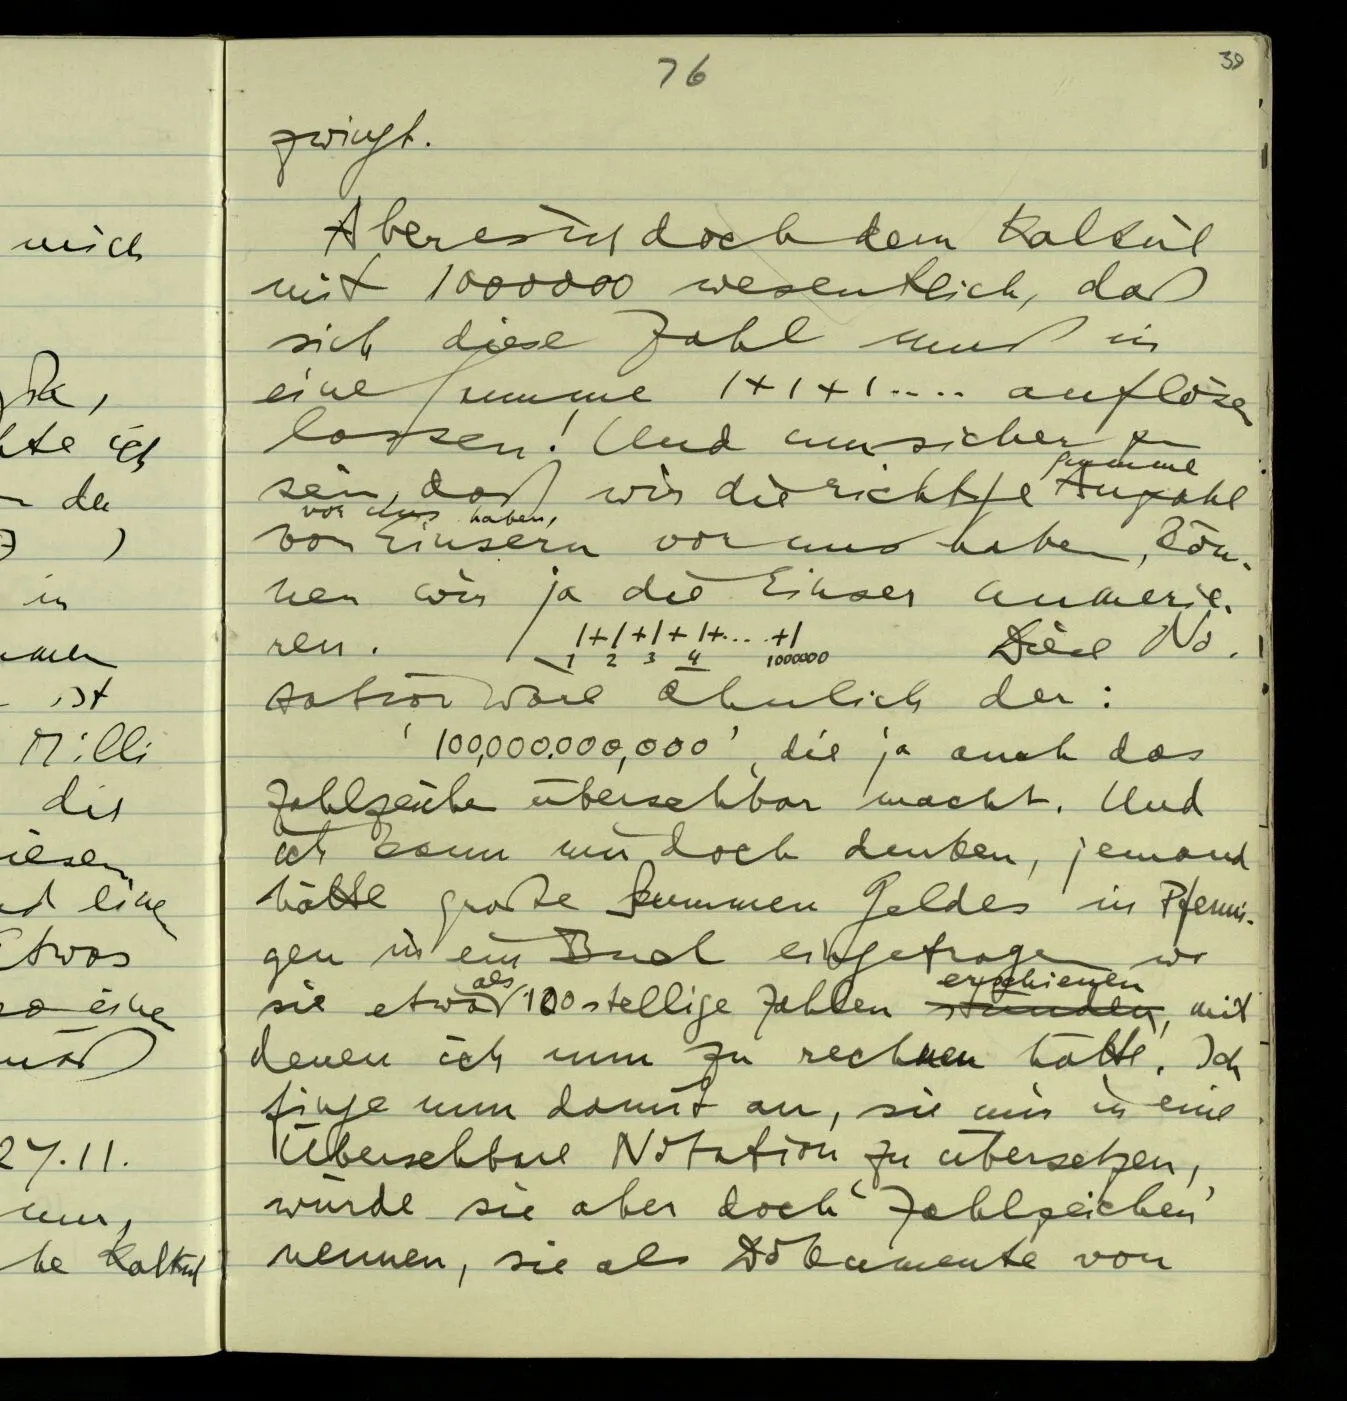 76
39
zwingt.
Aber es ist doch dem Kalkül
mit 1000000 wesentlich, daß
sich diese Zahl muß in
eine Summe 1+1+1.... auflösen
lassen! Und um sicher zu
Summe
sein, daß wir die richtige Anzahl
vor uns haben,
von Einsern vor uns haben, kön-
nen wir ja die Einser numerie-
ren. 1+1+1+1+... +1 Diese No-
1 2 3 4 1000000
tation wäre ähnlich der:
'100,000.000,000', die ja auch das
Zahlzeichen übersehbar macht. Und
ich kann mir doch denken, jemand
hätte große Summen Geldes in Pfenni-
gen in ein Buch eingetragen wo
als erschienen
sie etwa 100stellige Zahlen stünden, mit
denen ich nun zu rechnen hätte. Ich
finge nun damit an, sie mir in eine
Übersehbare Notation zu übersetzen,
würde sie aber doch 'Zahlzeichen'
nennen, sie als Dokumente von
mich
hte ich
den
)
in
ist
Milli
die
diesen
eine
Etwas
so eine
muß
27.11.
nur,
he Kalkül